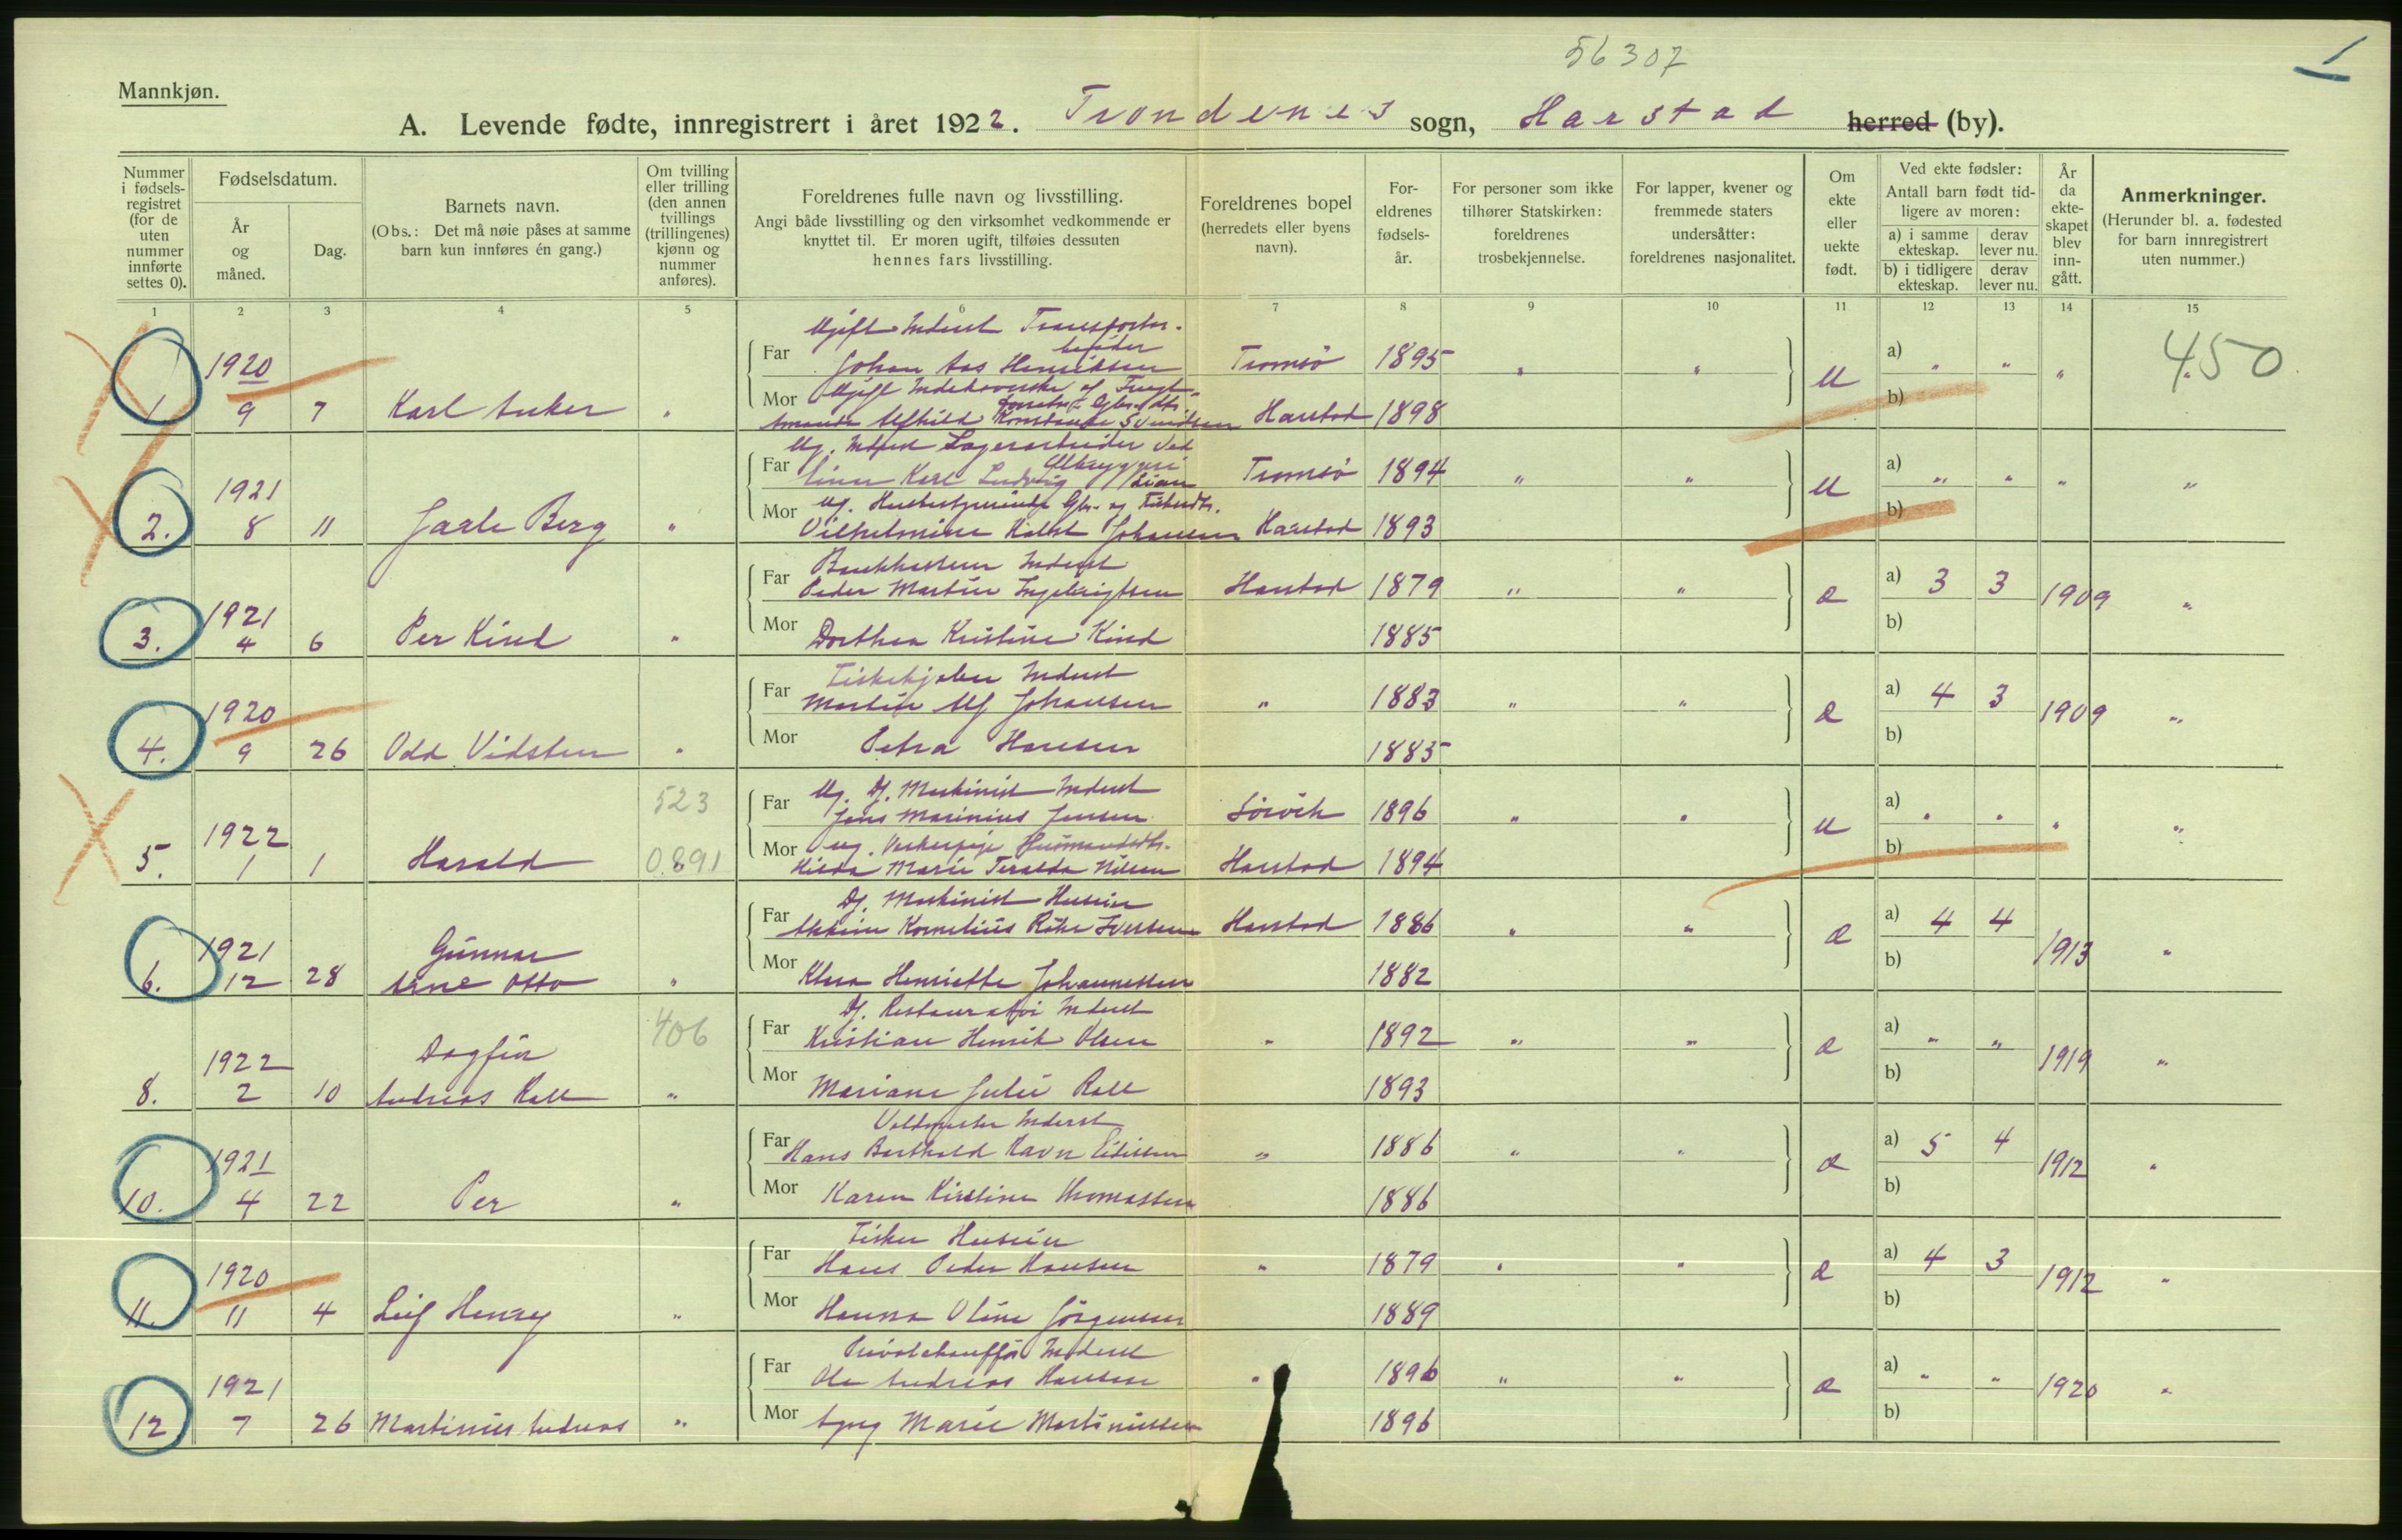 56307
1
Mannkjøn.
A. Levende fødte, innregistrert i året 1922. Trondenes sogn, Harstad herred (by).
Nummer i fødsels-registret (for de uten nummer innførte settes 0).
Fødselsdatum.
År og måned.
Dag.
Barnets navn.
(Obs.: Det må nøie påses at samme barn kun innføres én gang.)
Om tvilling eller trilling (den annen tvillings (trillingenes) kjønn og nummer anføres).
Foreldrenes fulle navn og livsstilling.
Angi både livsstilling og den virksomhet vedkommende er knyttet til. Er moren ugift, tilføies dessuten hennes fars livsstilling.
Foreldrenes bopel (herredets eller byens navn).
For-eldrenes fødsels-år.
For personer som ikke tilhører Statskirken: foreldrenes trosbekjennelse.
For lapper, kvener og fremmede staters undersåtter: foreldrenes nasjonalitet.
Om ekte eller uekte født.
Ved ekte fødsler:
Antall barn født tid-ligere av moren:
a) i samme ekteskap.
derav lever nu.
b) i tidligere ekteskap.
derav lever nu.
År da ekte-skapet blev inn-gått.
Anmerkninger.
(Herunder bl. a. fødested for barn innregistrert uten nummer.)
1 2 3 4 5 6 7 8 9 10 11 12 13 14 15
Ugift Inderst Transportar-
beider
1920 Far Johan Aas Henriksen Tromsö 1895 " " U a) " " " " 450
1. 9 7 Karl Anker " Mor Ugift Indehaverske af
Konstanse Svendsen Harstad 1898 b)
Ug. Inderst Lagerarbeider ved
Ølbryggeri
1921 Far Einar Karl Ludvig Lian Tromsö 1894 " " U a) " " " "
2. 8 11 Jarle Berg " Mor Ug. Husbestyrerinde Gbr. og
Vilhelmine Johansen Harstad 1893 b)
Bankkasserer Inderst
1921 Far Peder Martin Ingebrigtsen Harstad 1879 " " E a) 3 3 1909 "
3. 4 6 Per Kind " Mor Dorthea Kristine Kind 1885 b)
Fiskekjøber Inderst
1920 Far Martin Alf Johansen " 1883 " " E a) 4 3 1909 "
4. 9 26 Odd Vidsten " Mor Petra Hansen 1885 b)
523 Ug. Df. Maskinist Inderst
1922 Far Jens Marinius Jensen Sörvik 1896 " " U a) " " " "
5. 1 1 Harald 0.891 Mor ug. Husmandsdtr.
Hilda Marie Teralda Nilsen Harstad 1894 b)
Df. Maskinist Huseier
1921 Gunnar Far Kornelius Röke Iversen Harstad 1886 " " E a) 4 4 1913 "
6. 12 28 Arne Otto " Mor Klara Henriette Johannessen 1882 b)
406 Df. Restauratör Inderst
1922 Dagfin Far Kristian Henrik Olsen " 1892 " " E a) " " 1919 "
8. 2 10 Andreas Roll " Mor Mariane Julie Roll 1893 b)
Inderst
1921 Far Hans Barthold Ravn Eidissen " 1886 " " E a) 5 4 1912 "
10. 4 22 Per " Mor Karen Kirstine Thomassen 1886 b)
Fisker Huseier
1920 Far Hans Peder Hansen " 1879 " " E a) 4 3 1912 "
11. 11 4 Leif Henry " Mor Hanna Oline Jörgensen 1889 b)
Privatchaufför Inderst
1921 Far Ole Andreas Hansen " 1896 " " E a) " " 1920 "
12. 7 26 Martinius Andreas " Mor Marie Martinussen 1896 b)